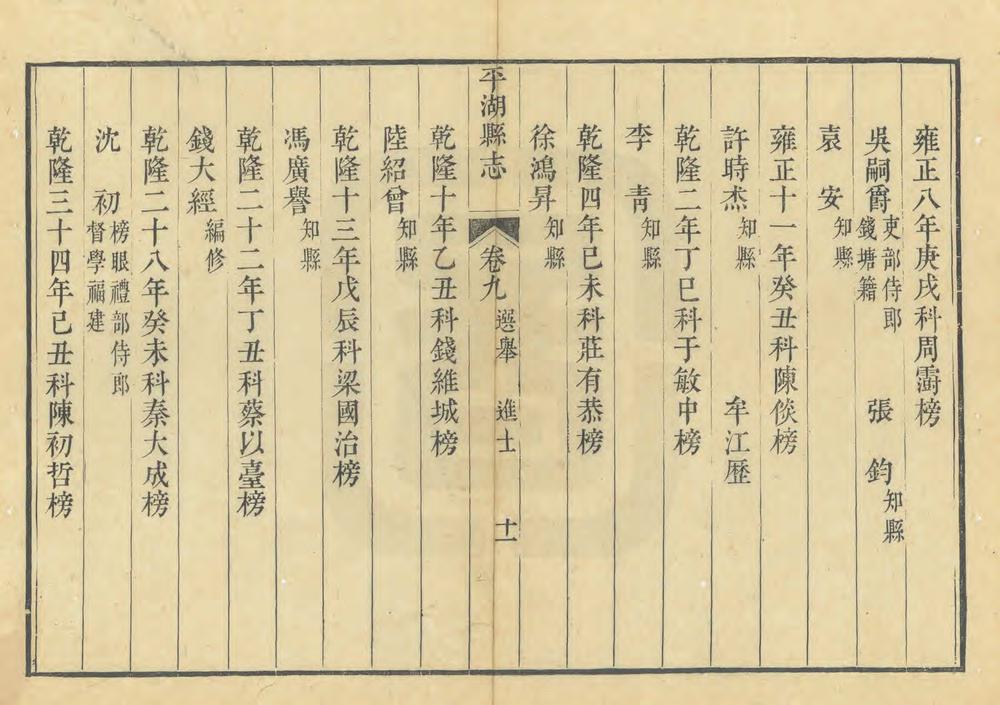 雍正八年庚戌科周霨榜
吳嗣爵吏部侍郎錢塘籍 張鈞知縣
袁安知縣
雍正十一年癸丑科陳倓榜
許時杰知縣 牟江歷
乾隆二年丁巳科于敏中榜
李青知縣
乾隆四年己未科莊有恭榜
徐鴻昇知縣
平湖縣志 卷九 選舉 進士 十一
乾隆十年乙丑科錢維城榜
陸紹曾知縣
乾隆十三年戊辰科梁國治榜
馮廣譽知縣
乾隆二十二年丁丑科蔡以臺榜
錢大經編修
乾隆二十八年癸未科秦大成榜
沈初榜眼禮部侍郎督學福建
乾隆三十四年己丑科陳初哲榜